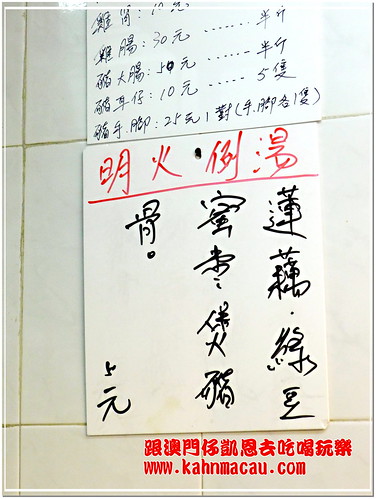 雞腸：30元 ...... 半斤
豬大腸：50元 ...... 半斤
豬耳仔：10元 ...... 5隻
豬手．脚：25元1對(手．脚各1隻)
明火例湯
蓮藕．綠豆
蜜棗煲豬
骨。
5元
跟澳門仔凱恩去吃喝玩樂
www.kahnmacau.com